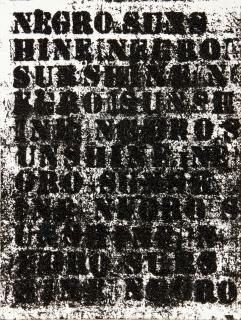 NEGRO SUNS
HINE NEGRO
SUNSHINE N
EGRO SUNSH
INE NEGRO S
UNSHINE NE
GRO SUNSH
INE NEGRO S
UNSHINE
NEGRO SUNS
HINE NEGRO